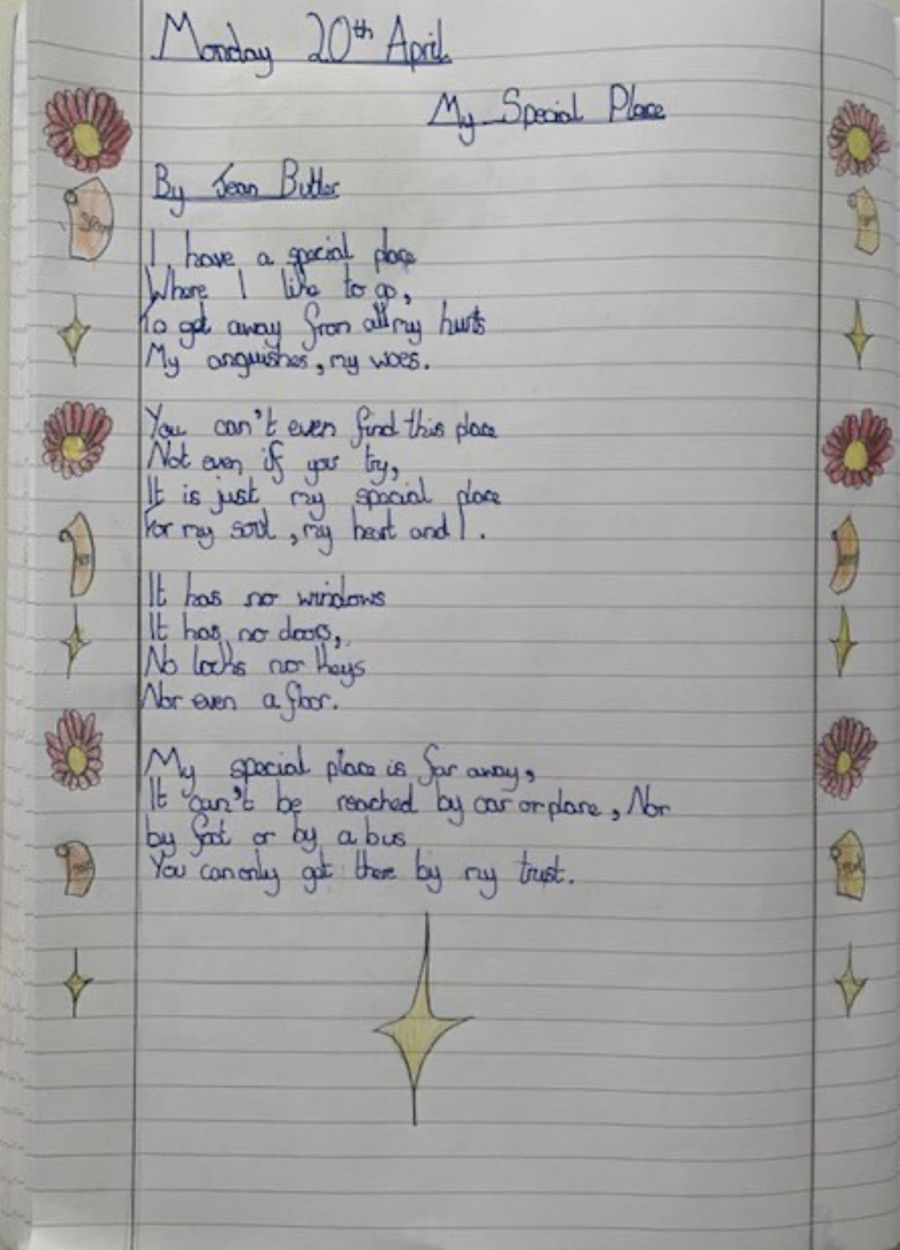 Monday 20th April
My Special Place
By Jean Butler
I have a special place
Where I like to go,
To get away from all my hurts
My anguishes, my woes.
You can't even find this place
Not even if you try,
It is just my special place
For my soul, my heart and I.
It has no windows
It has no doors,
No locks nor keys
Nor even a floor.
My special place is far away,
It can't be reached by car or plane, Nor
by foot or by a bus
You can only get there by my trust.